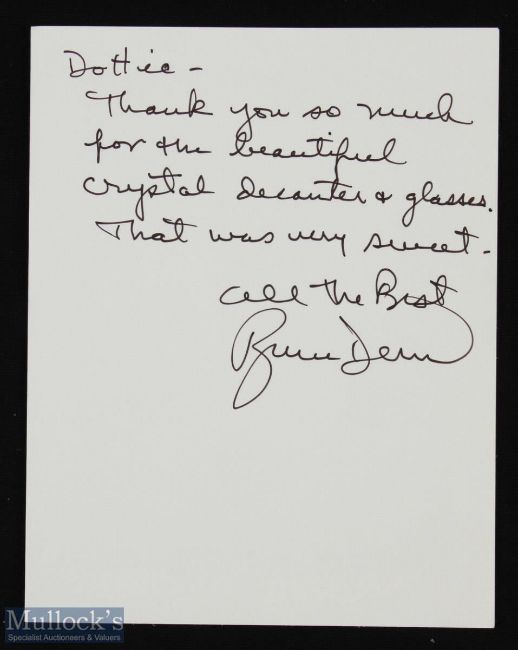 Dottie -
Thank you so much
for the beautiful
crystal decanter & glasses.
That was very sweet -
all the Best
Bruce Dern
Mullock's
Specialist Auctioneers & Valuers